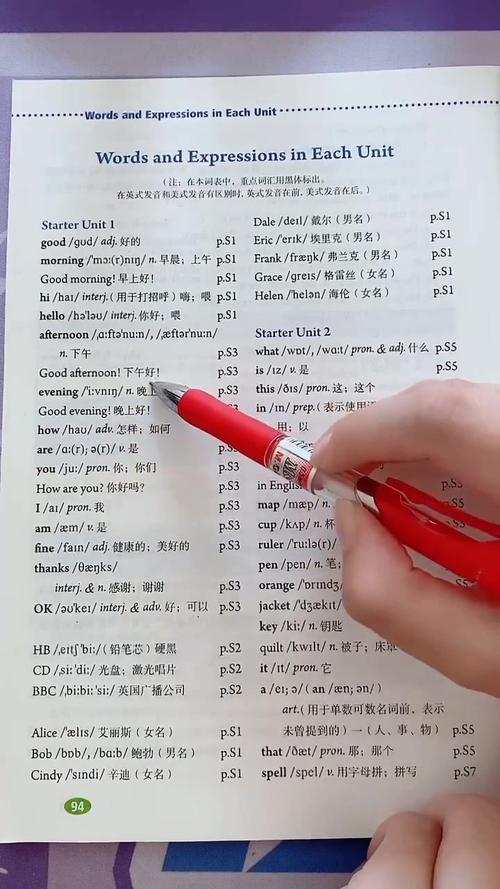 Words and Expressions in Each Unit
Words and Expressions in Each Unit
(注：在本词表中，重点词汇用黑体标出。
在英式发音和美式发音有区别时，英式发音在前，美式发音在后。)
Starter Unit 1
good /ɡʊd/ adj. 好的 p.S1
morning /ˈmɔː(r)nɪŋ/ n. 早晨；上午 p.S1
Good morning! 早上好！ p.S1
hi /haɪ/ interj. (用于打招呼) 嗨；喂 p.S1
hello /həˈləʊ/ interj. 你好；喂 p.S1
afternoon /ˌɑːftəˈnuːn/, /ˌæftərˈnuːn/
n. 下午 p.S3
Good afternoon! 下午好！ p.S3
evening /ˈiːvnɪŋ/ n. 晚上 p.S3
Good evening! 晚上好！ p.S3
how /haʊ/ adv. 怎样；如何 p.S3
are /ɑː(r); ə(r)/ v. 是 p.S3
you /juː/ pron. 你；你们 p.S3
How are you? 你好吗？ p.S3
I /aɪ/ pron. 我 p.S3
am /æm/ v. 是 p.S3
fine /faɪn/ adj. 健康的；美好的 p.S3
thanks /θæŋks/
interj. & n. 感谢；谢谢 p.S3
OK /əʊˈkeɪ/ interj. & adv. 好；可以 p.S3
HB /ˌeɪtʃˈbiː/ (铅笔芯) 硬黑 p.S2
CD /ˌsiːˈdiː/ 光盘；激光唱片 p.S2
BBC /ˌbiːbiːˈsiː/ 英国广播公司 p.S2
Alice /ˈælɪs/ 艾丽斯 (女名) p.S1
Bob /bɒb/, /bɑːb/ 鲍勃 (男名) p.S1
Cindy /ˈsɪndi/ 辛迪 (女名) p.S1
Dale /deɪl/ 戴尔 (男名) p.S1
Eric /ˈerɪk/ 埃里克 (男名) p.S1
Frank /fræŋk/ 弗兰克 (男名) p.S1
Grace /ɡreɪs/ 格雷丝 (女名) p.S1
Helen /ˈhelən/ 海伦 (女名) p.S1
Starter Unit 2
what /wɒt/, /wɑːt/ pron. & adj. 什么 p.S5
is /ɪz/ v. 是 p.S5
this /ðɪs/ pron. 这；这个 p.S5
in /ɪn/ prep. (表示使用
用；以
in English p.S5
map /mæp/ n.
cup /kʌp/ n. 杯
ruler /ˈruːlə(r)/
pen /pen/ n. 笔；
orange /ˈɒrɪndʒ
jacket /ˈdʒækɪt/
key /kiː/ n. 钥匙
quilt /kwɪlt/ n. 被子；床
it /ɪt/ pron. 它
a /eɪ; ə/ (an /æn; ən/)
art. (用于单数可数名词前，表示
未曾提到的) 一 (人、事、物) p.S5
that /ðæt/ pron. 那；那个 p.S5
spell /spel/ v. 用字母拼；拼写 p.S7
94